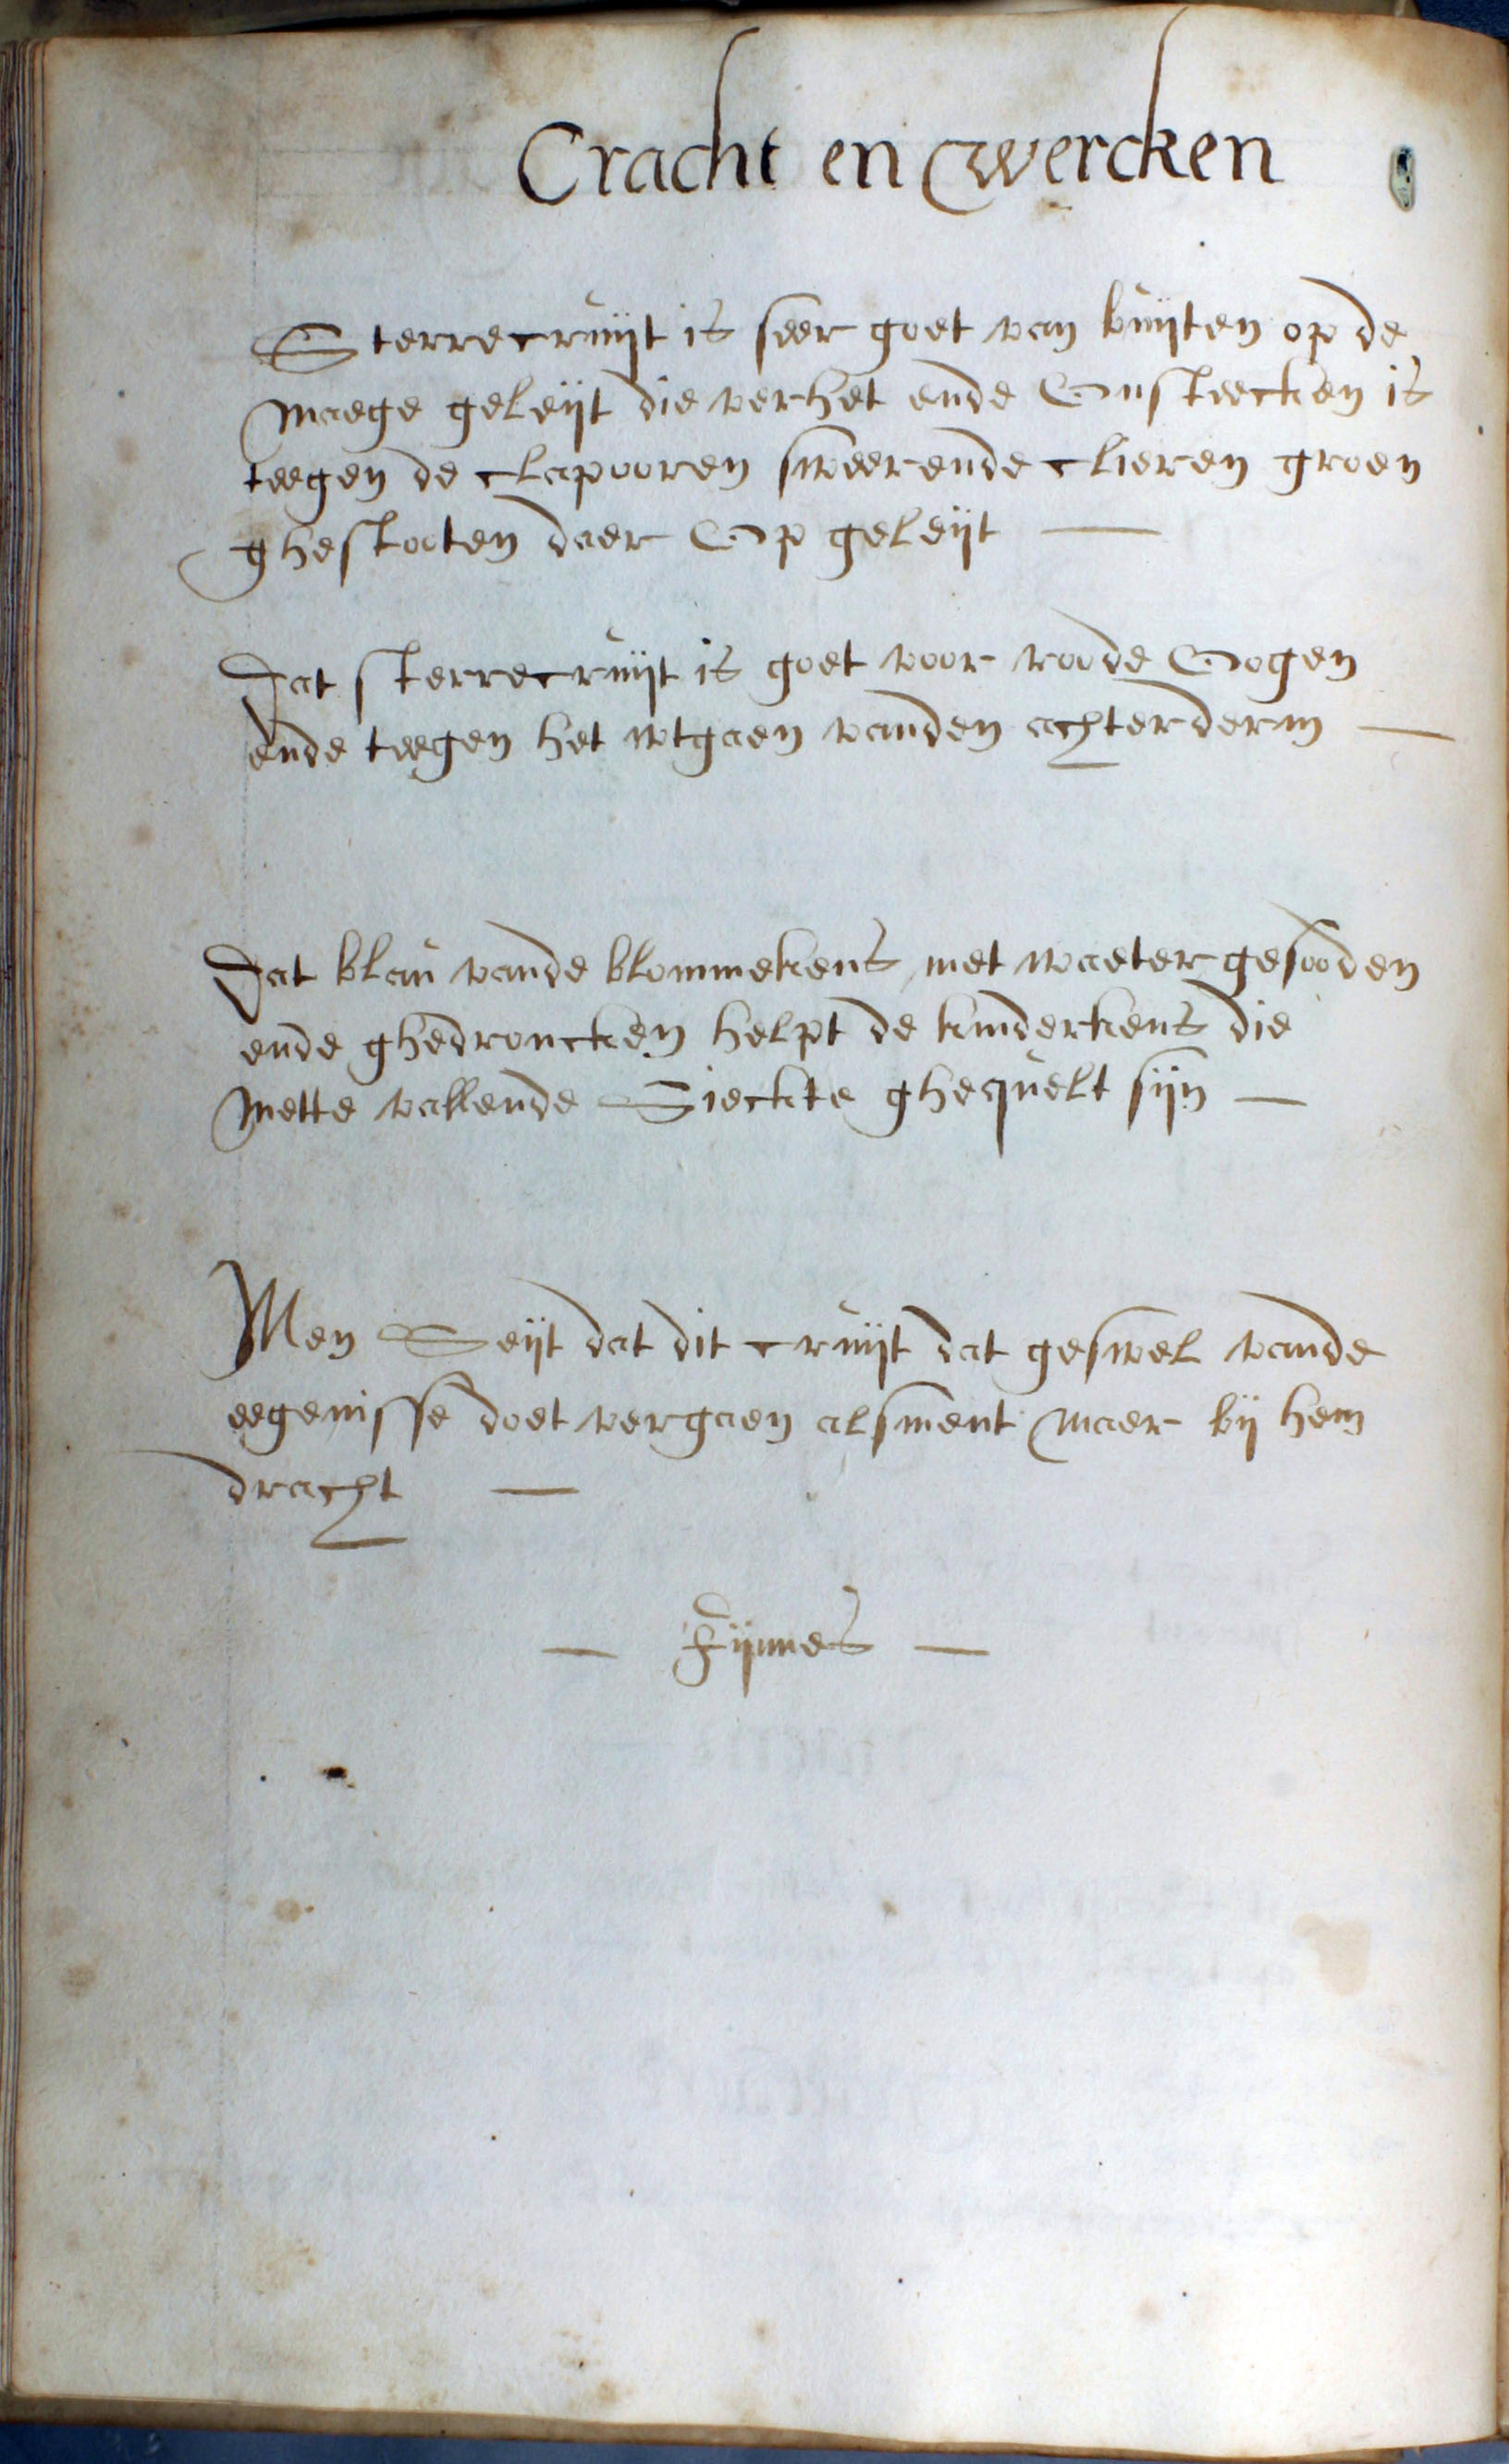 Cracht en wercken
Sterrecruijt is seer goet van buijten op de
maege geleijt die verhet ende Onsteecken is
teegen de clapooren sweerende clieren groen
ghestooten daer Op geleijt —
Dat sterrecruijt is goet voor roode Oogen
ende teegen het wtgaen vanden achterderm —
Dat blau vande blommekens met waeter gesooden
ende ghedroncken helpt de kinderkens die
mette vallende Sieckte ghequelt sijn —
Men Seijt dat dit cruijt dat geswel vande
eegenisse doet vergaen alsment maer bij hem
dracht —
— Fijnnes —